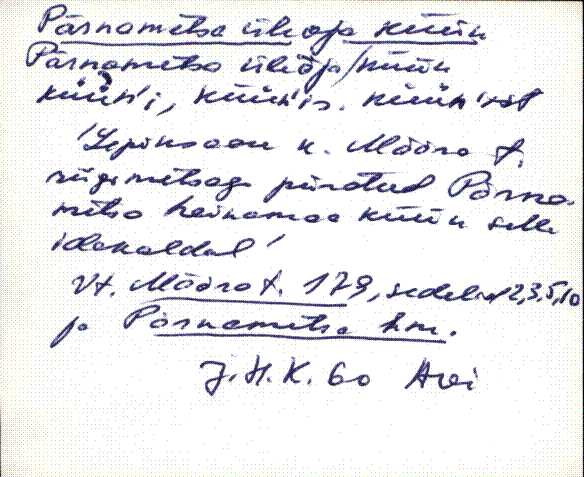 Pärnametsa ühoja küün
Pärnametsa ühoja/küün
küün'i, küün'is. küün'ist
'Lepiksaare k. Määra t.
riigimetsaga piiratud Pärna-
metsa heinamaa küün selle
idakaldal'
Vt. Määra t. 179, sedelid 2,3,5,10
ja Pärnametsa hm.
J.H.K. 60